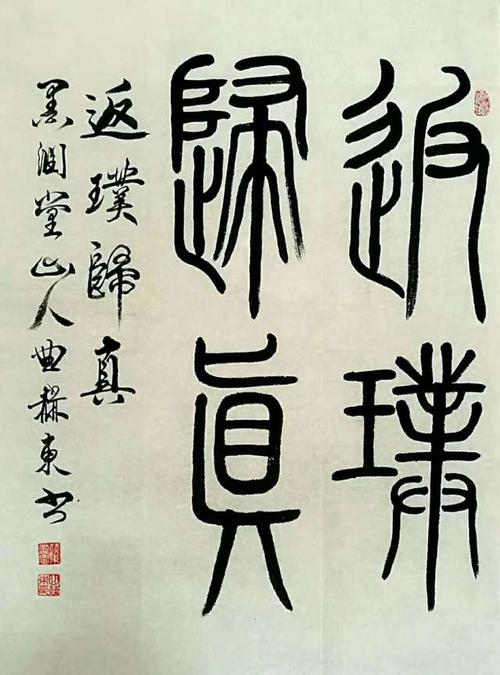 返璞
歸真
返璞歸真
墨润堂山人曲赫東书